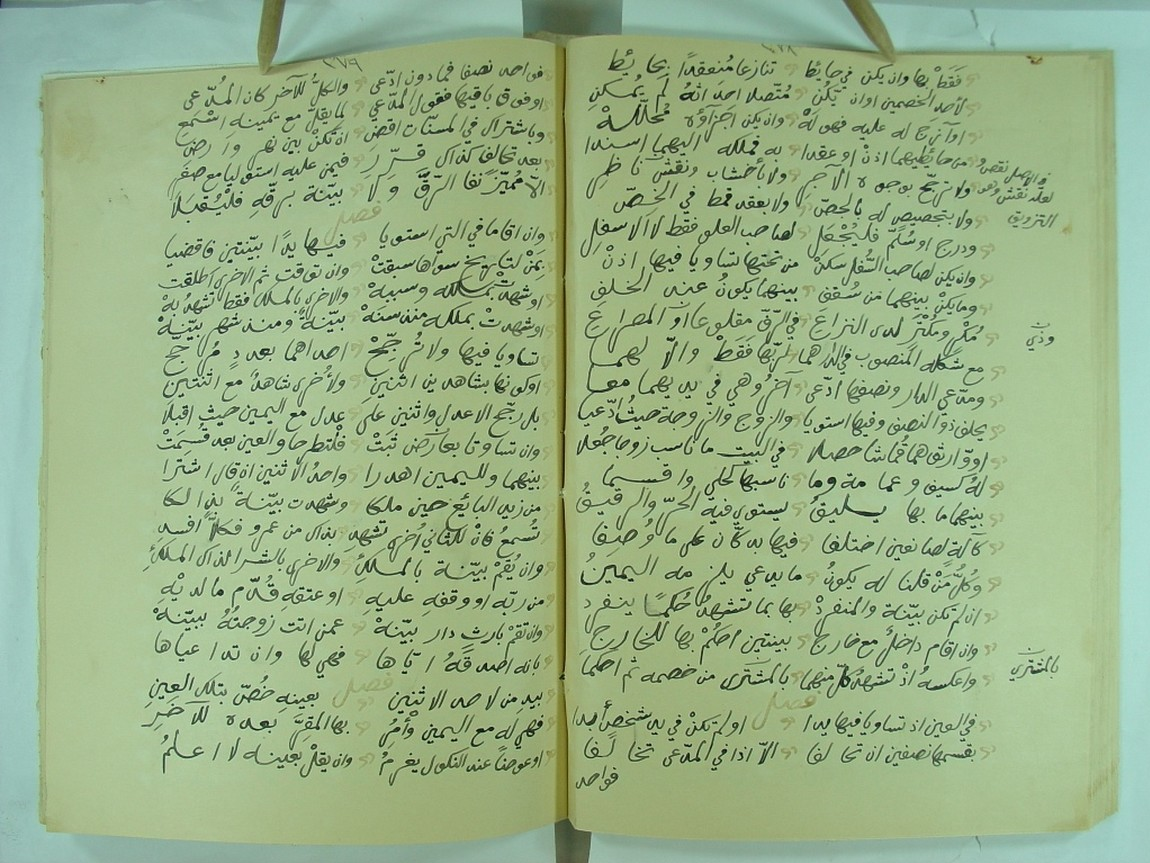 ٢٧٨
فقط بها وان يكن في حايط تنازعا منعقدًا بحايط
لأحد الخصمين او ان يكن متصلا احد انه لم يمكن
او آزج له عليه فهو له وان يكن اجزاؤه محللة
من حائطيهما اذن او عقدا به فملكه اليهما اسندا
ولا ترجح بوجوه الآجر ولا بأخشاب ونقش ناظر
ولا بتجصيص له بالجص ولا بعقد قمط في الخص
ودرج او سلم فليجعل لصاحب العلو فقط لا الاسفل
وان يكن لصاحب السفل سكن من تحتها تساويا فيها اذن
وما يكن بينهما من سقف بينهما يكون عند الخلف
ومكر ومكتر لدى النزاع في الرف مقلوعا او المصراع
مع شكله المنصوب في الدار هما لربها فقط والا لهما
ومدعي الدار ونصفها ادعى آخر وهي في يديهما معا
يحلف ذو النصف وفيها استويا والزوج والزوجة حيث ادعيا
او وارثوهما قماشا حصلا في البيت ما ناسب زوجا جعلا
له كسيف وعمامة وما ناسبها كحلي واقسما
بينهما ما بها يليق يستوي فيه الحر والرقيق
كآلة لصانعين اختلفا فيها بدكان على ما وصفا
وكل من قلنا له يكون ما يدعي يلزمه اليمين
ان لم تكن بينة والمنفرد بها بما تشهد حكما ينفرد
وان اقام داخل مع خارج بينتين احكم بها للخارج
واعكسه اذ تشهد كل منهما بالمشترى من خصمه ثم احكما
فصل
في العين اذ تساويا فيها يدا او لم تكن في يد شخص أبدا
بقسمها نصفين ان تحالفا الا اذا في المدعى تخالفا
فواحد
وذي
بالمشترى
٢٧٩
فواحد نصفا فما دون ادعى والكل للآخر كان المدعى
او فوق باقيها فقول المدعي لما يقل مع يمينه استمع
وباشتراك في المسنات اقض ان تكن بين نهر وارض
بعد تحالف كذاك قرر فيمن عليه استوليا مع صغر
الا مميزا نفا الرق ولا بينة برقه فليقبلا
فصل
وان اقاما في التي استويا فيها يدًا بينتين فاقضيا
بمن لتاريخ سواها سبقت وان توقت ثم الاخرى اطلقت
او شهدت بملكه وسببه والاخرى بالملك فقط تشهد به
او شهدت بملكه منذ سنه بينة ومنذ شهر بينه
تساويا فيها ولا ترجح احداهما بعدد مرجح
او كونها بشاهدين اثنين والأخرى شاهد مع اثنتين
بل رجح الاعدل واثنين على عدل مع اليمين حيث اقبلا
وان تساوتا تعارض ثبت فلتطرحا والعين بعد قسمت
بينهما ولليمين اهدرا واحد الاثنين ان قال اشترا
من زيد البائع حين ملكا وشهدت بينة بذالكا
تسمع فان للثاني أخرى تشهد بذاك من عمرو فكلاً افسد
وان يقم بينة بالملك والاخرى بالشرا لذاك الملك
من ربه او وقفه عليه او عتقه قدم ما لديه
وان تقم بارث دار بينه عمن اتت زوجته ببينه
بانه اصدقه اياها فهي لها وان تداعياها
فصل
بيد من لاحد الاثنين بعينه خص بتلك العين
فهي له مع اليمين وأمر بها المقر بعده للآخر
او عوضا عند النكول يغرم وان يقل بعينه لا اعلم